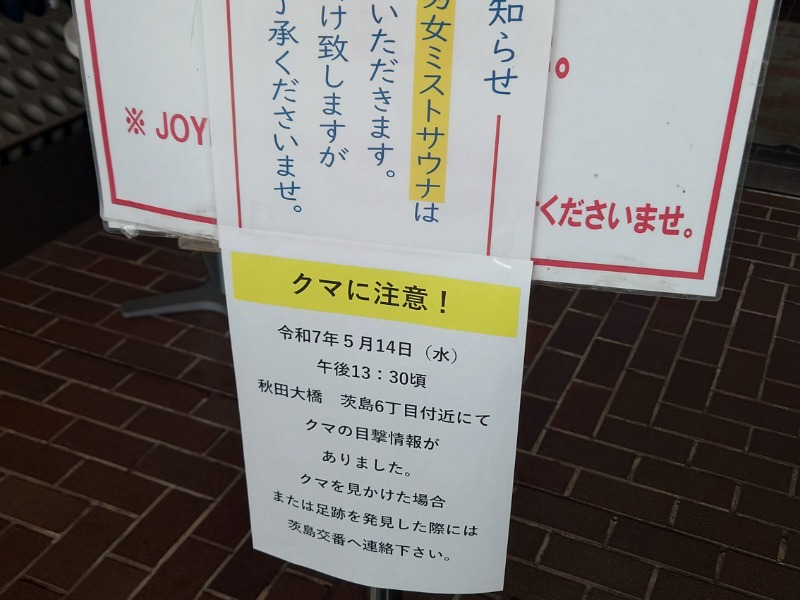 知らせ
男女ミストサウナは
いただきます。
け致しますが
了承くださいませ。
※ JOY
くださいませ。
クマに注意！
令和7年５月14日（水）
午後13：30頃
秋田大橋　茨島6丁目付近にて
クマの目撃情報が
ありました。
クマを見かけた場合
または足跡を発見した際には
茨島交番へ連絡下さい。